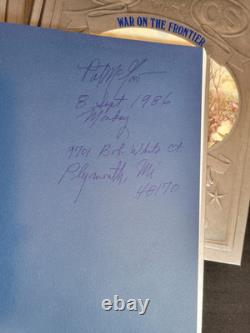 WAR ON THE FRONTIER
8 Sept 1986
Monday
9701 Bob White Ct
Plymouth, Mi
48170
ebay